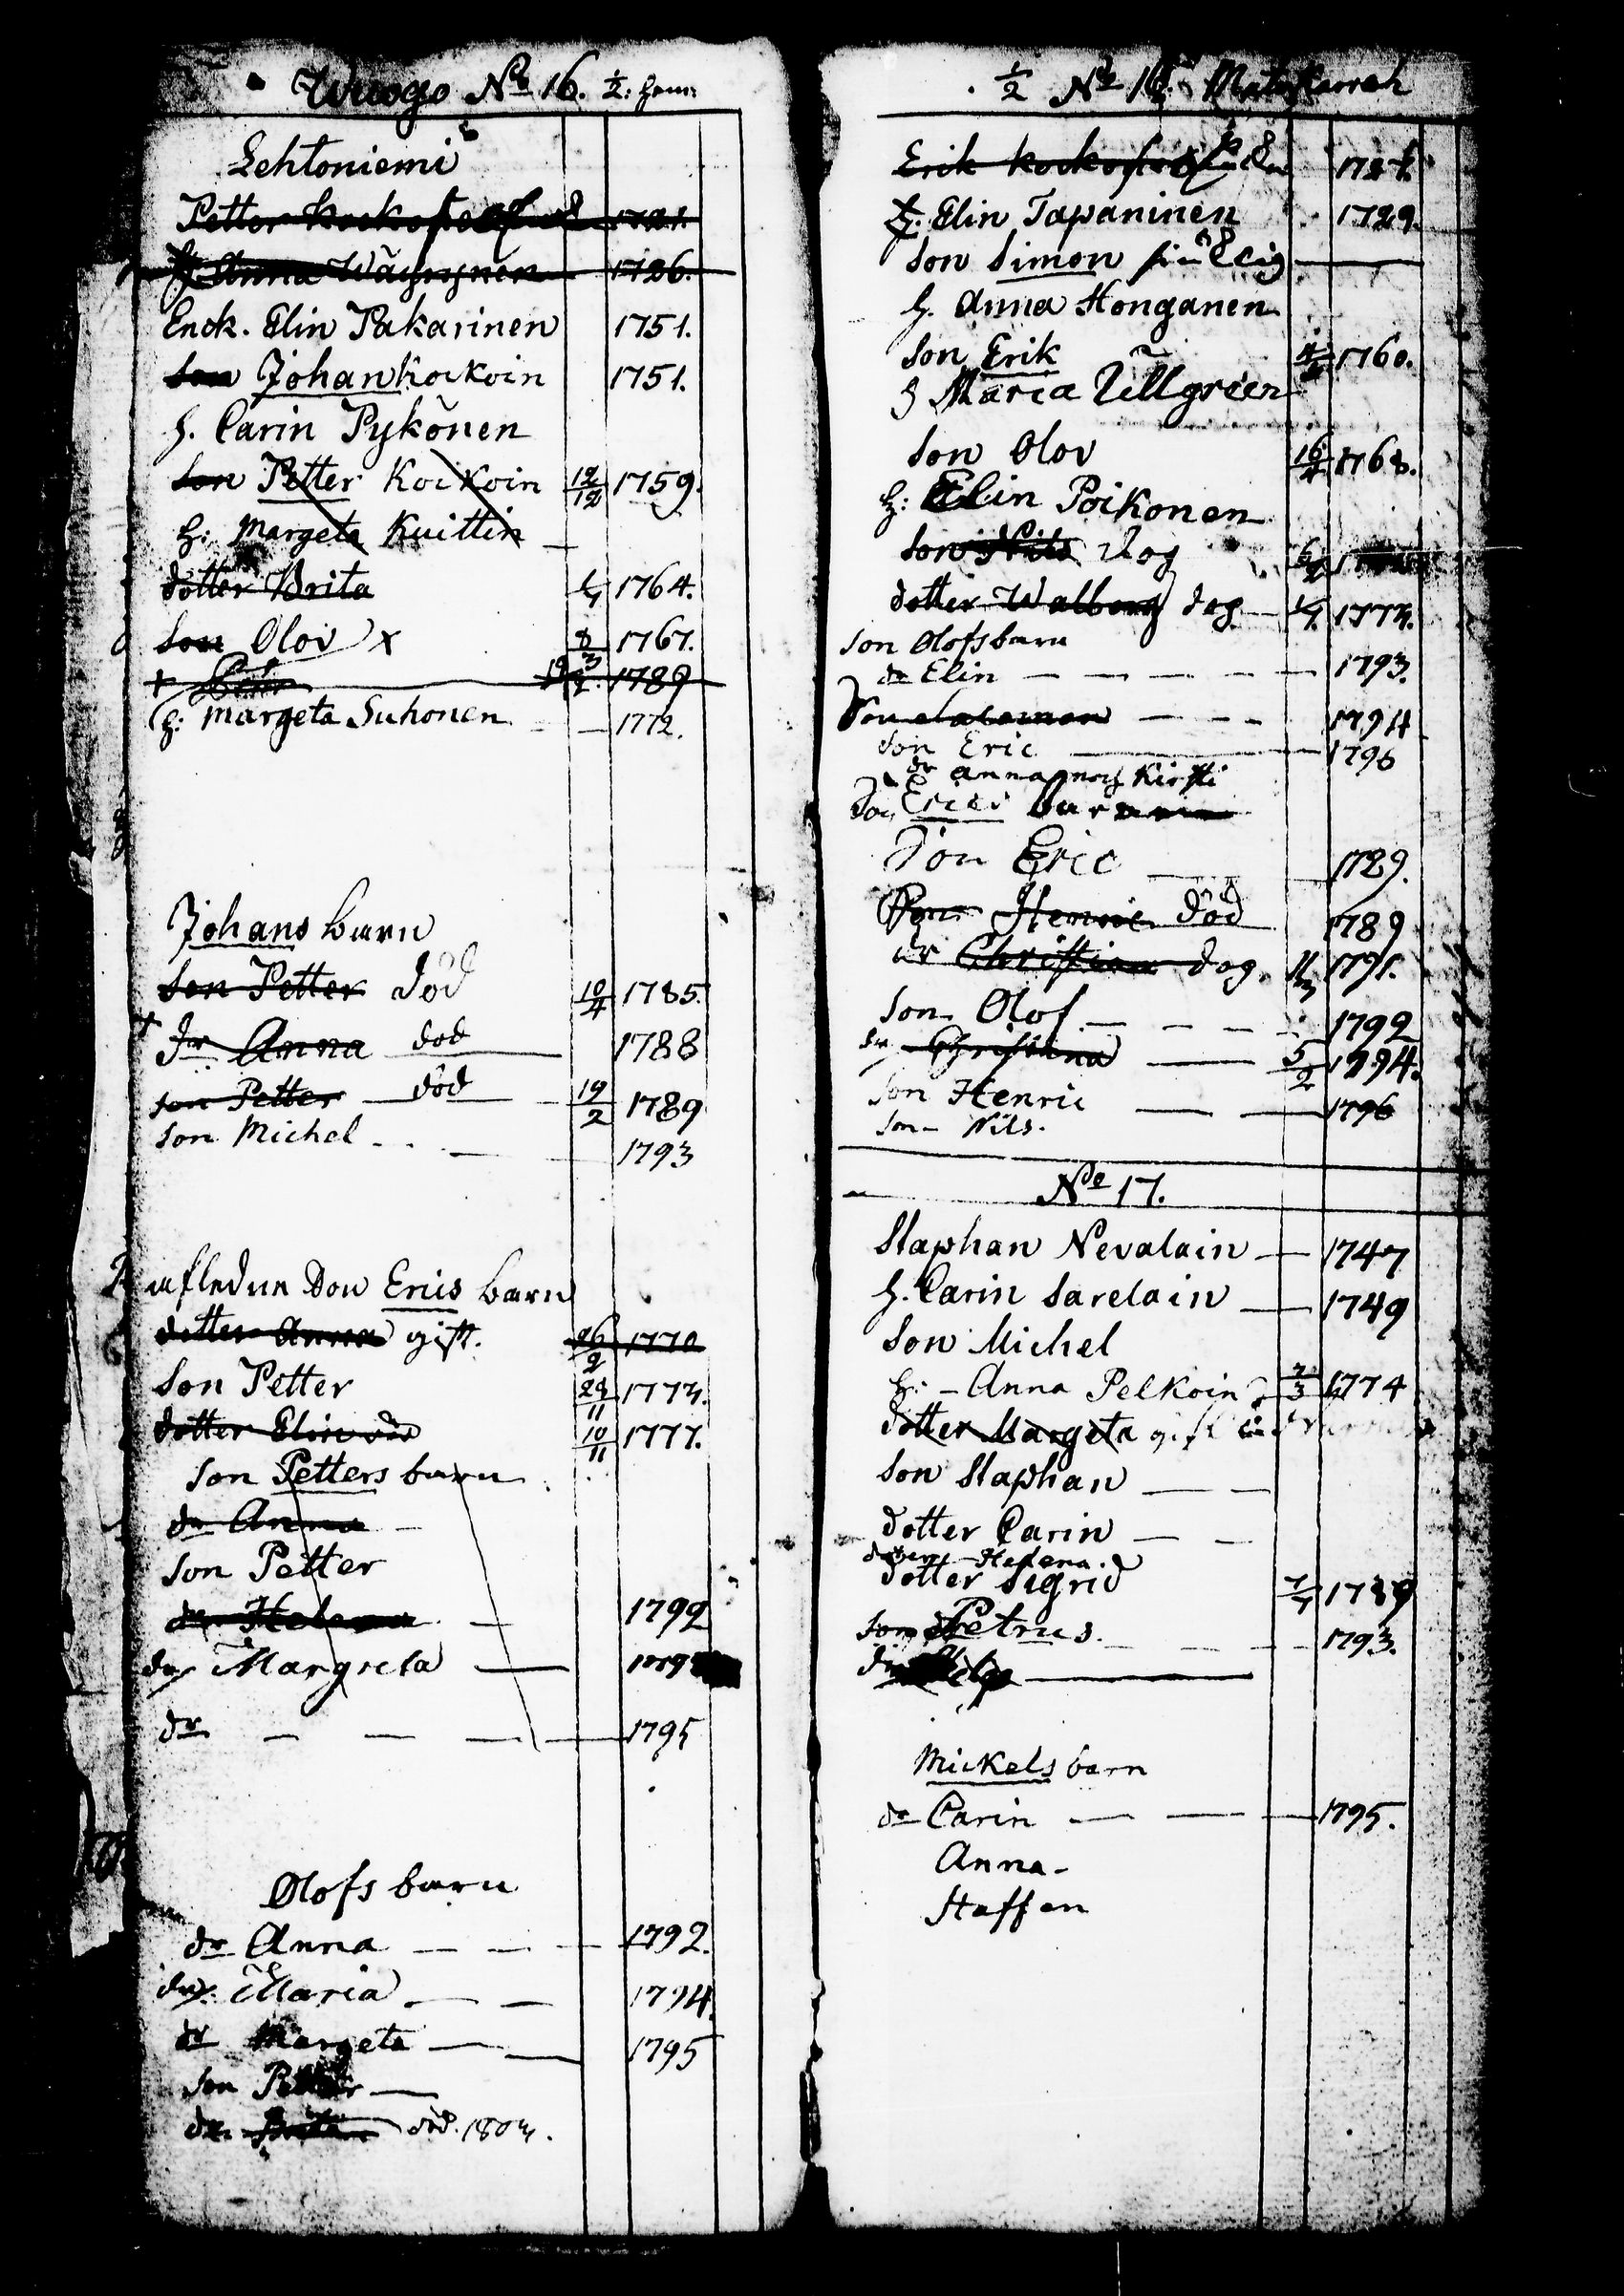 Wuogo No 16. 1/2: hem:
Lehtoniemi
Petter 1721.
H. Anna Wäyrynen 1726.
Enck. Elin Pakarinen 1751.
Son Johan Kockoin 1751.
H. Carin Pykönen
Son Petter Kockoin 12/12 1759.
H: Margeta Kuittin
dotter Brita 1764.
Son Olov x 1767.
1789
H: Margeta Suhonen 1772.
Johans barn
Son Petter död 10/4 1785.
dr Anna död 1788
son Petter död 19/2 1789
Son Michel 1793
afledne Son Erics barn
dotter Anna gift. 26/9 1770
Son Petter 24/11 1774.
dotter Elin 10/11 1777.
Son Petters barn
dr Anna
Son Petter
dr Helena 1792
dr Margreta
dr 1795
Olofs barn
dr Anna 1792.
dr Maria 1794
dr Margeta 1795
Son Petter
dr Brita död. 1804.
1/2 No 16.
Erik
H. Elin Tapaninen 1729.
Son Simon
H. Anna Honganen
Son Erik 1760.
H Maria Tillgreen
Son Olov 16/4 1768.
H: Elin Poikonen
Son Nils dog
dotter Walborg dog 1774.
Son Olofs barn
dr Elin 1793.
Son Salomon 1794
Son Eric 1796
dr Anna och Kirsti
Son Erics barn
Son Eric 1789.
Son Henric död 1789
dr Christina dog. 1791.
Son Olof 1792
dr Christina 5/2 1794.
Son Henric 1796
Son Nils.
No 17.
Staphan Nevalain 1747
H. Carin Sarelain 1749
Son Michel
H: Anna Pelkoin 7/3 1774
dotter Margeta gift
Son Staphan
dotter Carin
Helena.
dotter Sigrid 1789
Son Petrus. 1793.
Mickels barn
dr Carin 1795.
Anna
Staffan